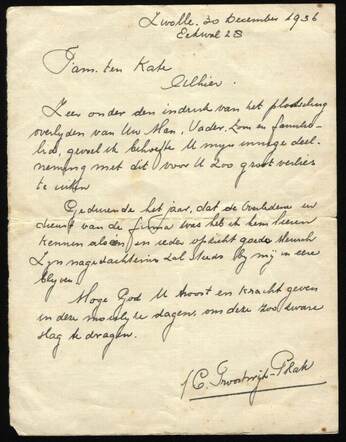 Zwolle. 30 December 1936
Eekwal 28
Fam. ten Kate
Alhier.
Zeer onder den indruk van het plotseling
overlijden van Uw Man, Vader, Zoon en familie-
lid, gevoel ik behoefte U mijn innige deel-
neming met dit voor U zoo groot verlies
te uiten
Gedurende het jaar, dat de Overledene in
dienst van de firma was heb ik hem leeren
kennen als een in ieder opzicht goede Mensch
Zijn nagedachtenis zal steeds bij mij in eere
blijven
Moge God U troost en kracht geven
in deze moeilijke dagen, om deze zoo zware
slag te dragen.
C. Troostwijk-Phak